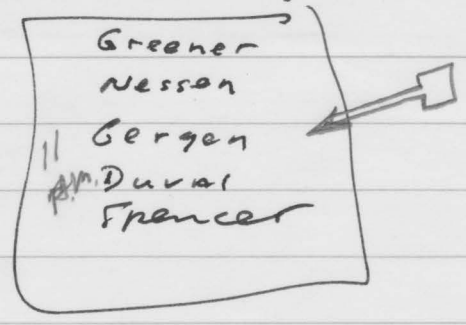 Greener
Nessen
Gergen
11
A.M. Duval
Spencer